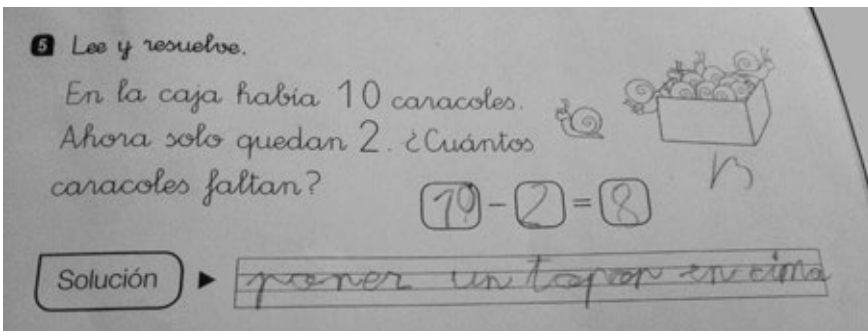 5 Lee y resuelve.
En la caja había 10 caracoles.
Ahora solo quedan 2. ¿Cuántos
caracoles faltan?
10 - 2 = 8
B
Solución ▶ poner un tapon en cima